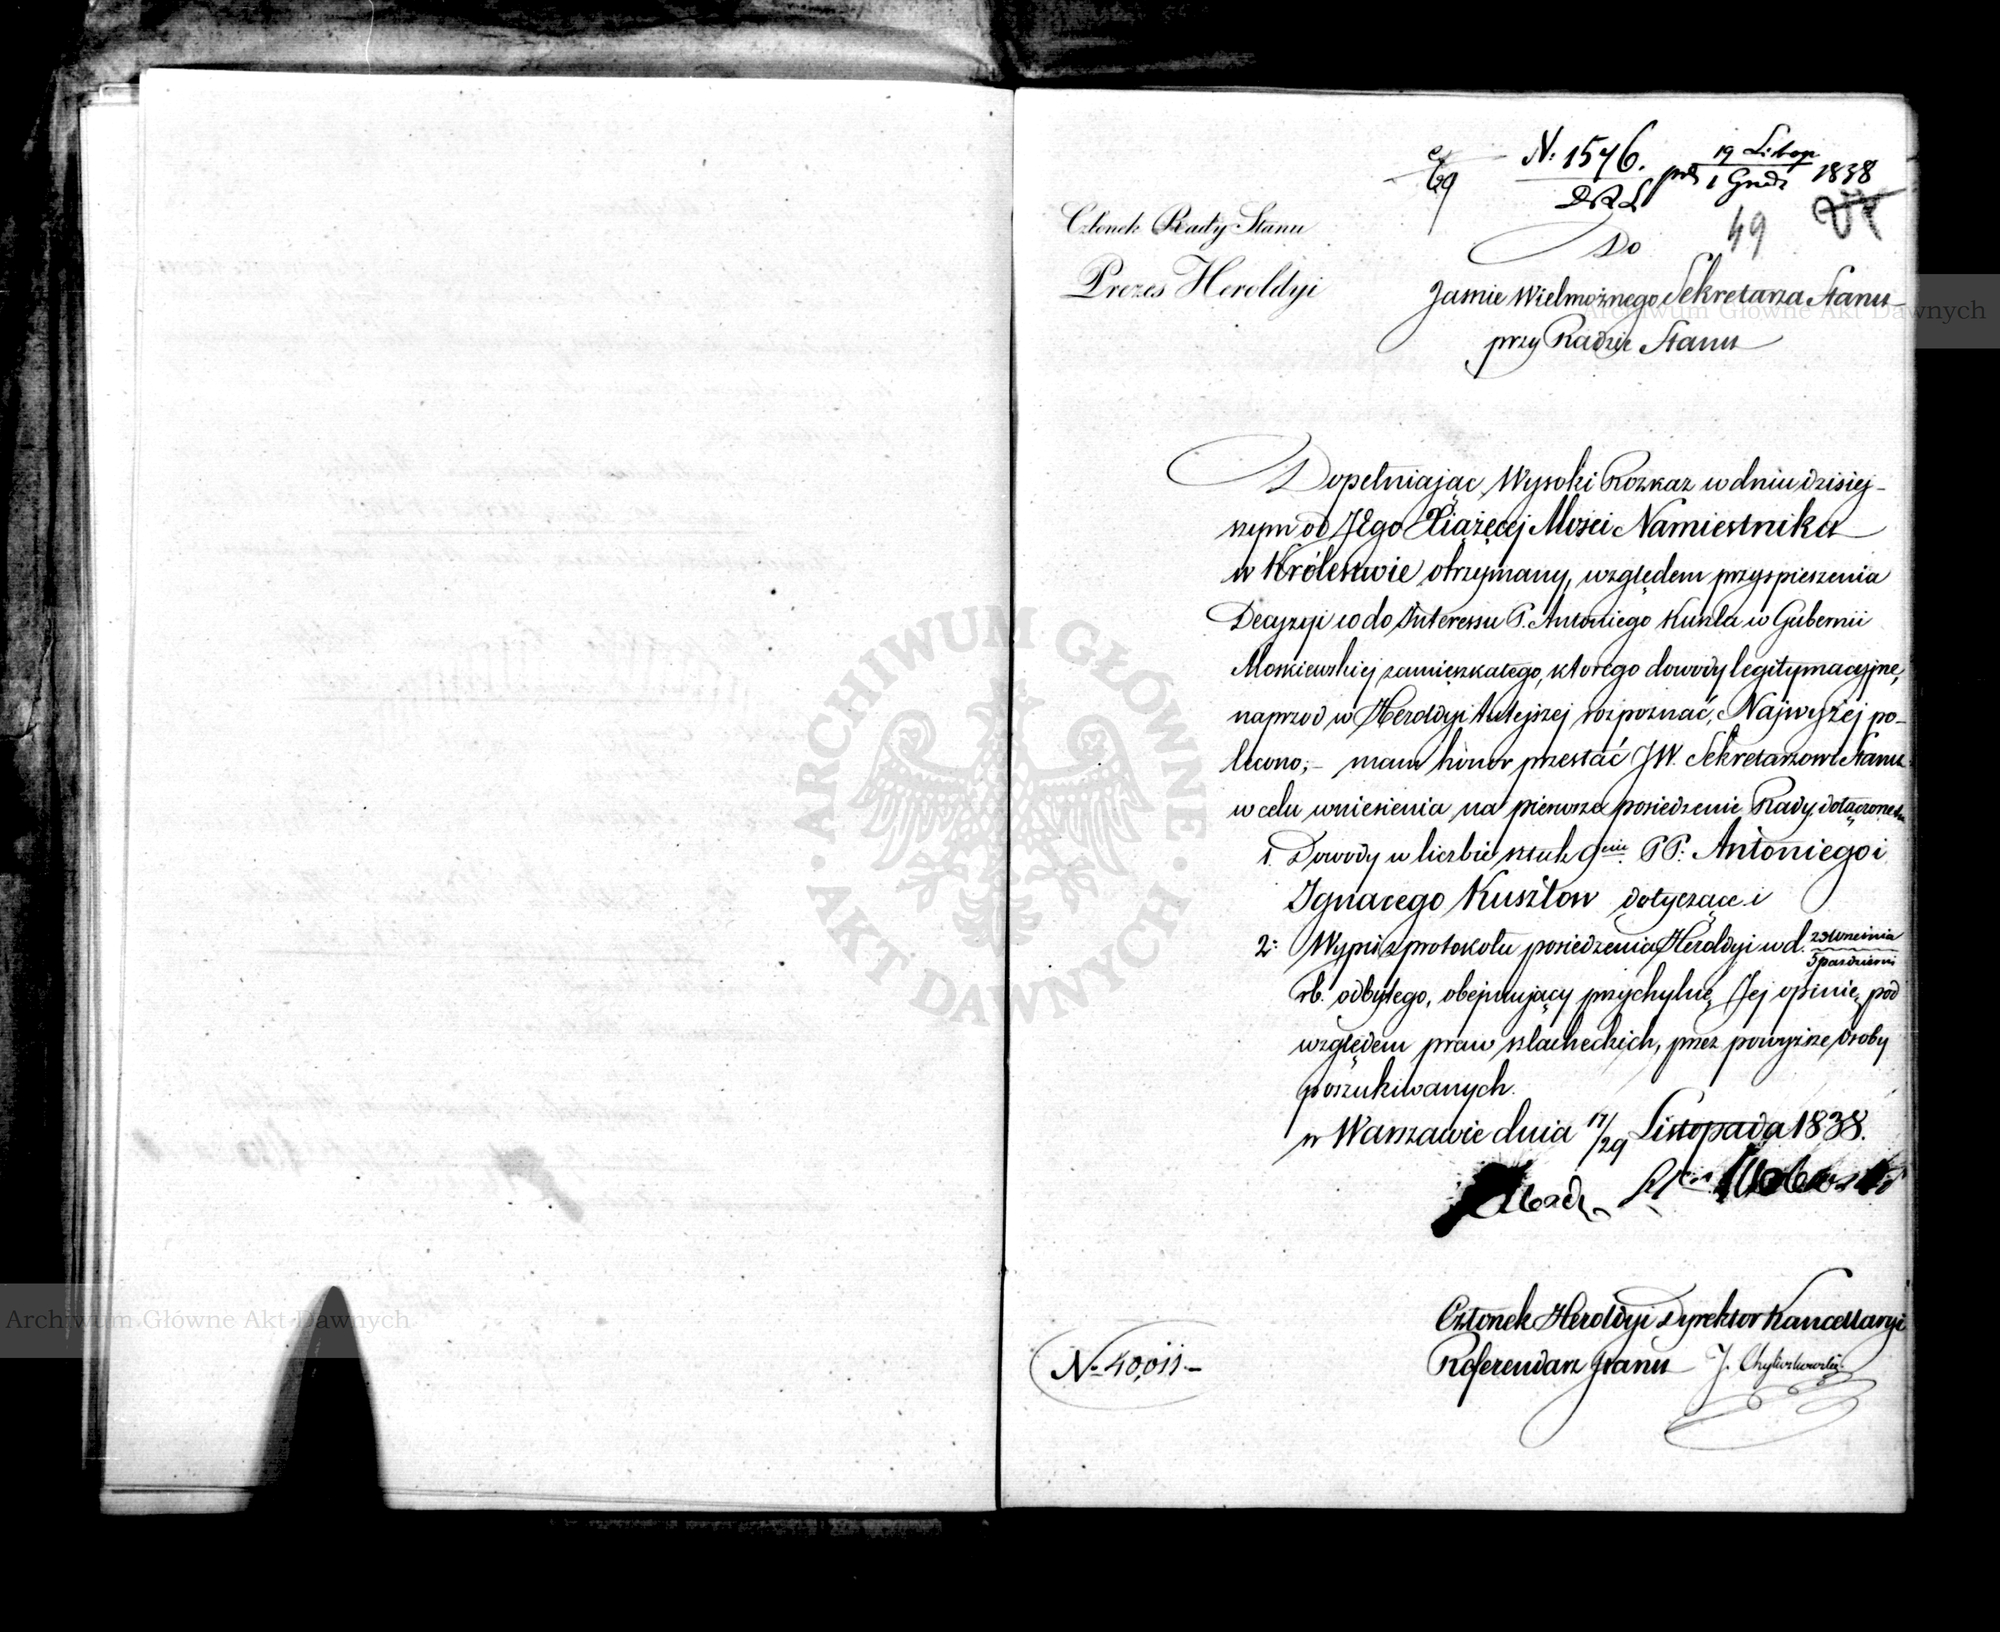 N: 1546.
D R S
19 Listop
1 Grud
1838
49
Członek Rady Stanu
Prezes Heroldyi
Do
Jaśnie Wielmożnego Sekretarza Stanu
przy Radzie Stanu
Dopełniając Wysoki Rozkaz w dniu dzisiej-
szym od JEgo Xiążęcej Mości Namiestnika
w Królestwie otrzymany, względem przyspieszenia
Decyzyi co do Interessu P. Antoniego Kuszla w Gubernii
Moskiewskiej zamieszkałego, którego dowody legitymacyjne,
naprzod w Heroldyi tutejszej rozpoznać, Najwyżej po-
lecono; – mam honor przesłać JW. Sekretarzowi Stanu
w celu wniesienia na pierwsze posiedzenie Rady, dołączone tu
1. Dowody w liczbie sztuk 9ciu PP: Antoniego i
Ignacego Kuszlow dotyczące i
2: Wypis z protokołu posiedzenia Heroldyi w d. 23 Września
5 październi
rb. odbytego, obejmujący przychylną Jej opinię, pod
względem praw szlacheckich, przez powyższe osoby
poszukiwanych.
w Warszawie dnia 17/29 Listopada 1838.
Członek Heroldyi Dyrektor Kancellaryi
Referendarz Stanu
No 40,011 –
ARCHIWUM GŁÓWNE · AKT DAWNYCH ·
Archiwum Główne Akt Dawnych
Archiwum Główne Akt Dawnych